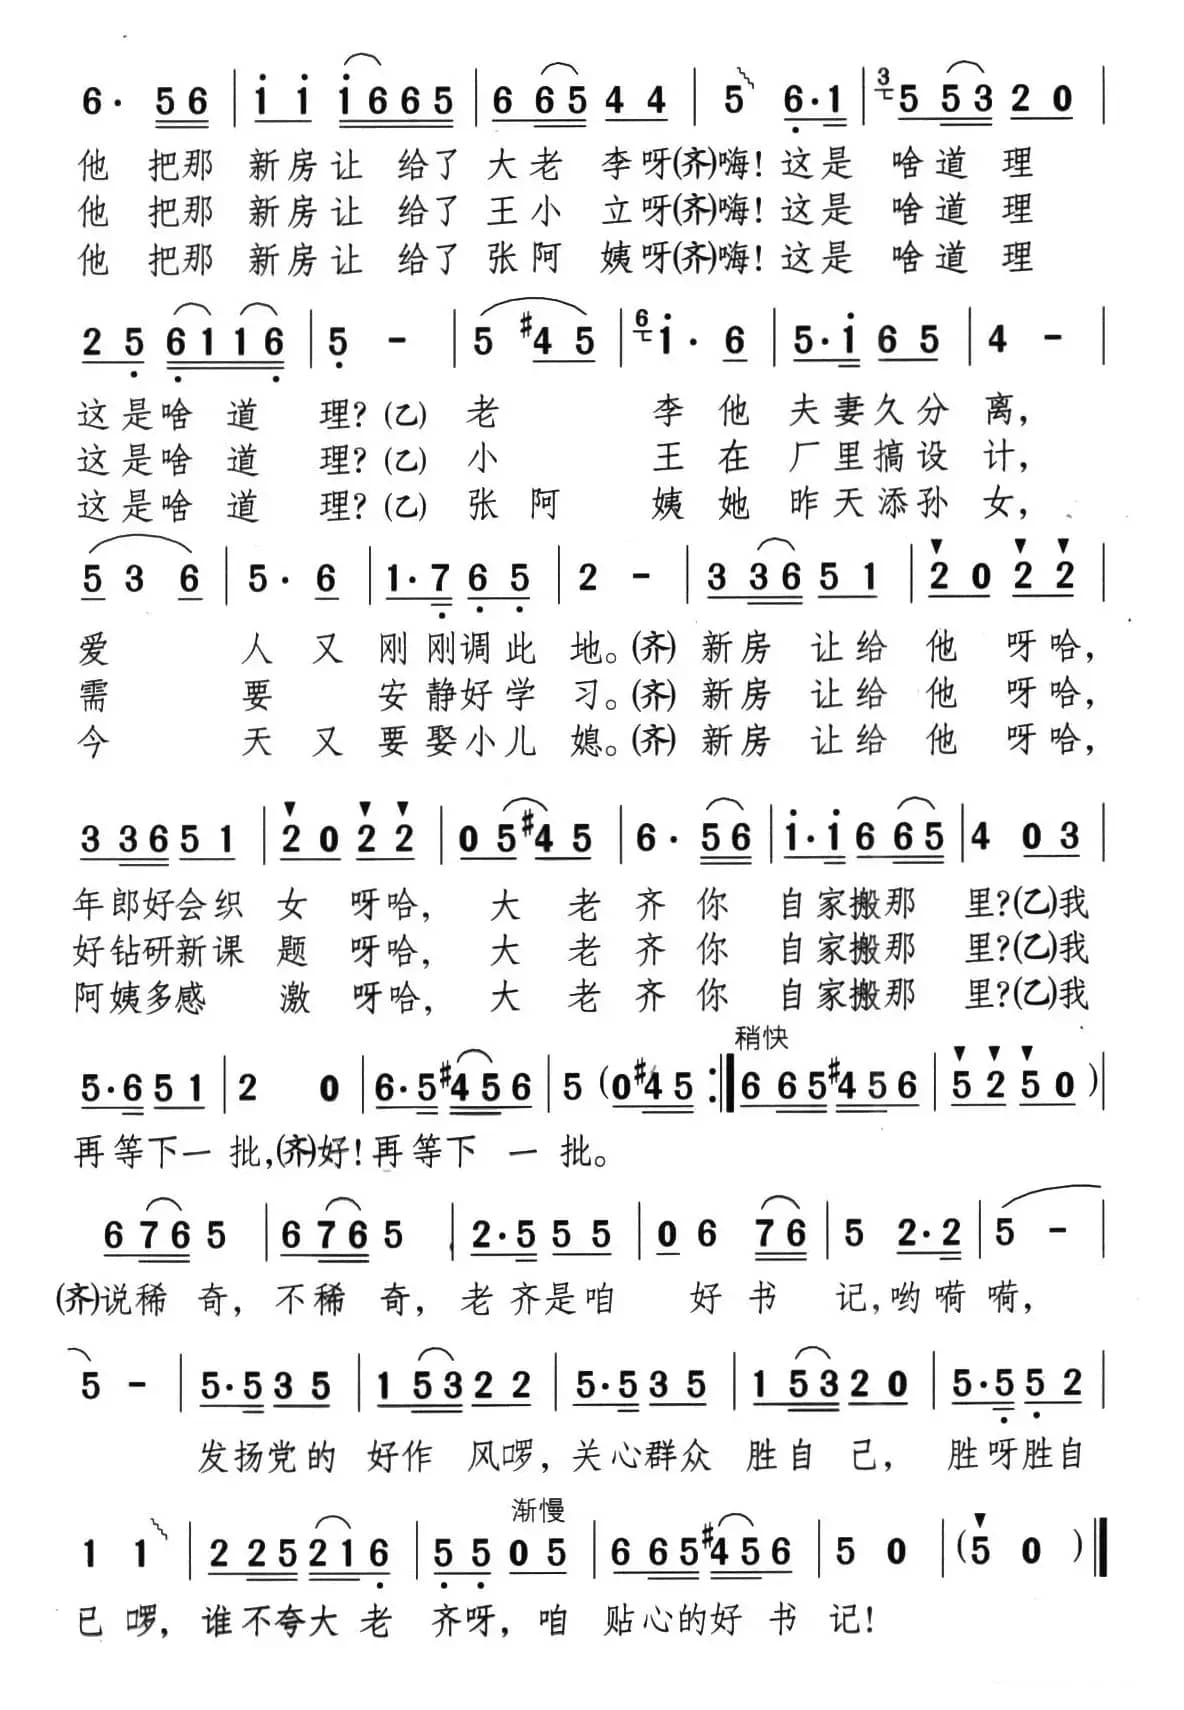 6· 56 | i i i665 | 6 65 4 4 | 5 6·1 | 3 5 53 2 0 |
他 把那 新房让 给了 大老 李呀(齐)嗨!这是 啥道 理
他 把那 新房让 给了 王小 立呀(齐)嗨!这是 啥道 理
他 把那 新房让 给了 张阿 姨呀(齐)嗨!这是 啥道 理
2 5 6116 | 5 - | 5 #4 5 | 6 i· 6 | 5·i 6 5 | 4 - |
这是啥 道 理?(乙) 老 李 他 夫妻久分 离,
这是啥 道 理?(乙) 小 王 在 厂里搞设 计,
这是啥 道 理?(乙) 张 阿 姨 她 昨天添孙 女,
5 3 6 | 5· 6 | 1·7 6 5 | 2 - | 3 36 5 1 | 2 0 2 2 |
爱 人 又 刚 刚调 此 地。(齐) 新房 让给 他 呀哈,
需 要 安 静好 学 习。(齐) 新房 让给 他 呀哈,
今 天 又 要 娶小 儿 媳。(齐) 新房 让给 他 呀哈,
3 36 5 1 | 2 0 2 2 | 0 5 #4 5 | 6· 56 | i·i 6 65 | 4 0 3 |
年郎好会织 女 呀哈, 大 老 齐 你 自家搬那 里?(乙)我
好钻研新课 题 呀哈, 大 老 齐 你 自家搬那 里?(乙)我
阿姨多感 激 呀哈, 大 老 齐 你 自家搬那 里?(乙)我
稍快
5·6 5 1 | 2 0 | 6·5 #4 5 6 | 5 (0 #4 5 :| 6 65 #4 5 6 | 5 2 5 0) |
再等下一 批,(齐)好!再等下 一 批。
6 76 5 | 6 76 5 | 2·5 5 5 | 0 6 76 | 5 2·2 | 5 - |
(齐)说稀 奇, 不稀 奇, 老 齐是咱 好 书 记,哟嗬 嗬,
5 - | 5·5 3 5 | 1 53 2 2 | 5·5 3 5 | 1 53 2 0 | 5·5 5 2 |
发扬党的 好作 风啰, 关心群众 胜自 己, 胜呀胜自
渐慢
1 1 | 2 25 21 6 | 5 5 0 5 | 6 65 #4 5 6 | 5 0 | (5 0) ‖
已 啰, 谁不夸大 老 齐呀, 咱 贴心的好 书 记!